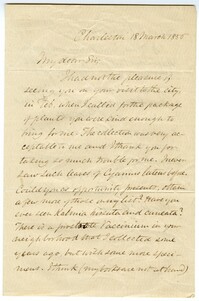 Charleston 18 March 1855
My dear Sir
I had not the pleasure of
seeing you on your visit to the city
in Feb. when I called for the package
of plants you were kind enough to
bring for me. The collection was very ac
ceptable to me and I thank you for
taking so much trouble for me. I never
saw such leaves of Cyperus before.
Could you if opportunity present, obtain
a few more of those on my list? Have you
ever seen Kalmia hirsuta and cuneata?
There is a Vaccinium in your
neighborhood that I collected some
years ago but wish some more speci
mens. I think (my books are not at hand)